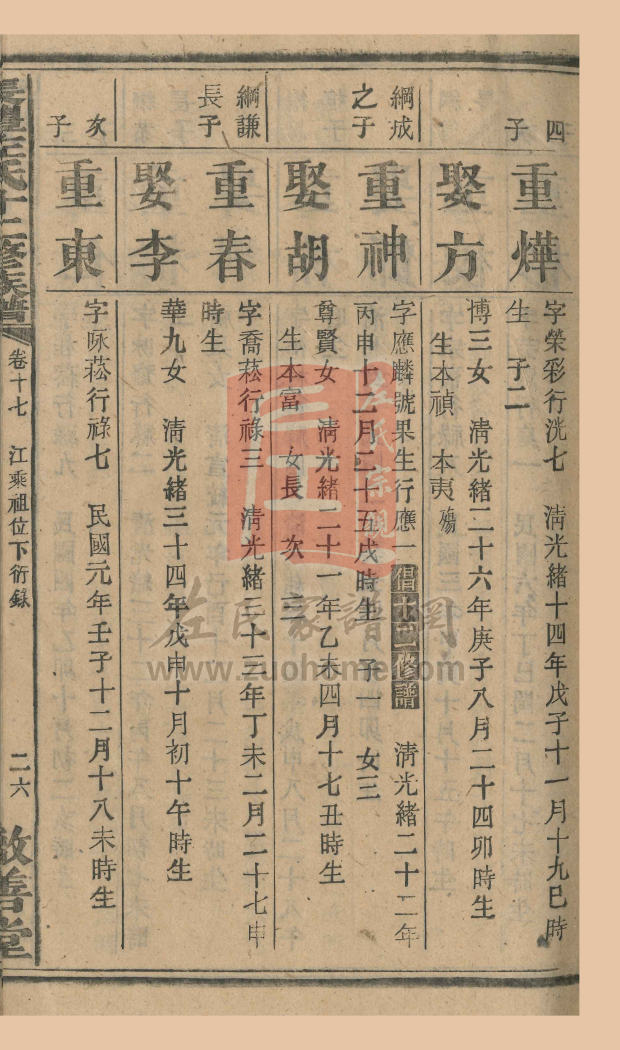 四子
重燁
字榮彩行洸七　清光緒十四年戊子十一月十九巳時
生　子二
娶方
博三女　清光緒二十六年庚子八月二十四卯時生
生本禎　本夷殤
綱成之子
重神
字應麟號果生行應一倡十二修譜　清光緒二十二年
丙申十二月二十五戌時生　子一　女三
娶胡
尊賢女　清光緒二十一年乙未四月十七丑時生
生本富　女長　次　三
綱謙長子
重春
字喬菘行祿三　清光緒三十三年丁未二月二十七申
時生
娶李
華九女　清光緒三十四年戊申十月初十午時生
次子
重東
字詠菘行祿七　民國元年壬子十二月十八未時生
左氏十二修族譜
卷十七　江乘祖位下衍錄
二六
敦善堂
左氏宗親
左氏家譜網
www.zuohome.com